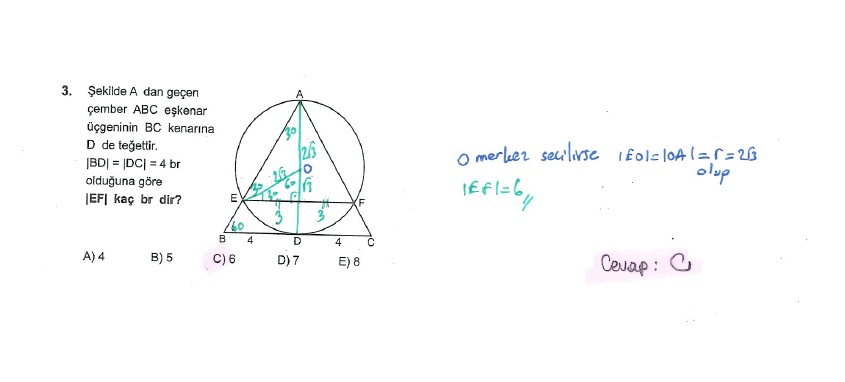 3. Şekilde A dan geçen
çember ABC eşkenar
üçgeninin BC kenarına
D de teğettir.
|BD| = |DC| = 4 br
olduğuna göre
|EF| kaç br dir?
A) 4 B) 5 C) 6 D) 7 E) 8
A
30
2√3
O
2√3
60
√3
30
30
E
F
3
3
60
B 4 D 4 C
O merkez seçilirse |EO|=|OA|=r=2√3
olup
|EF|=6
Cevap: C